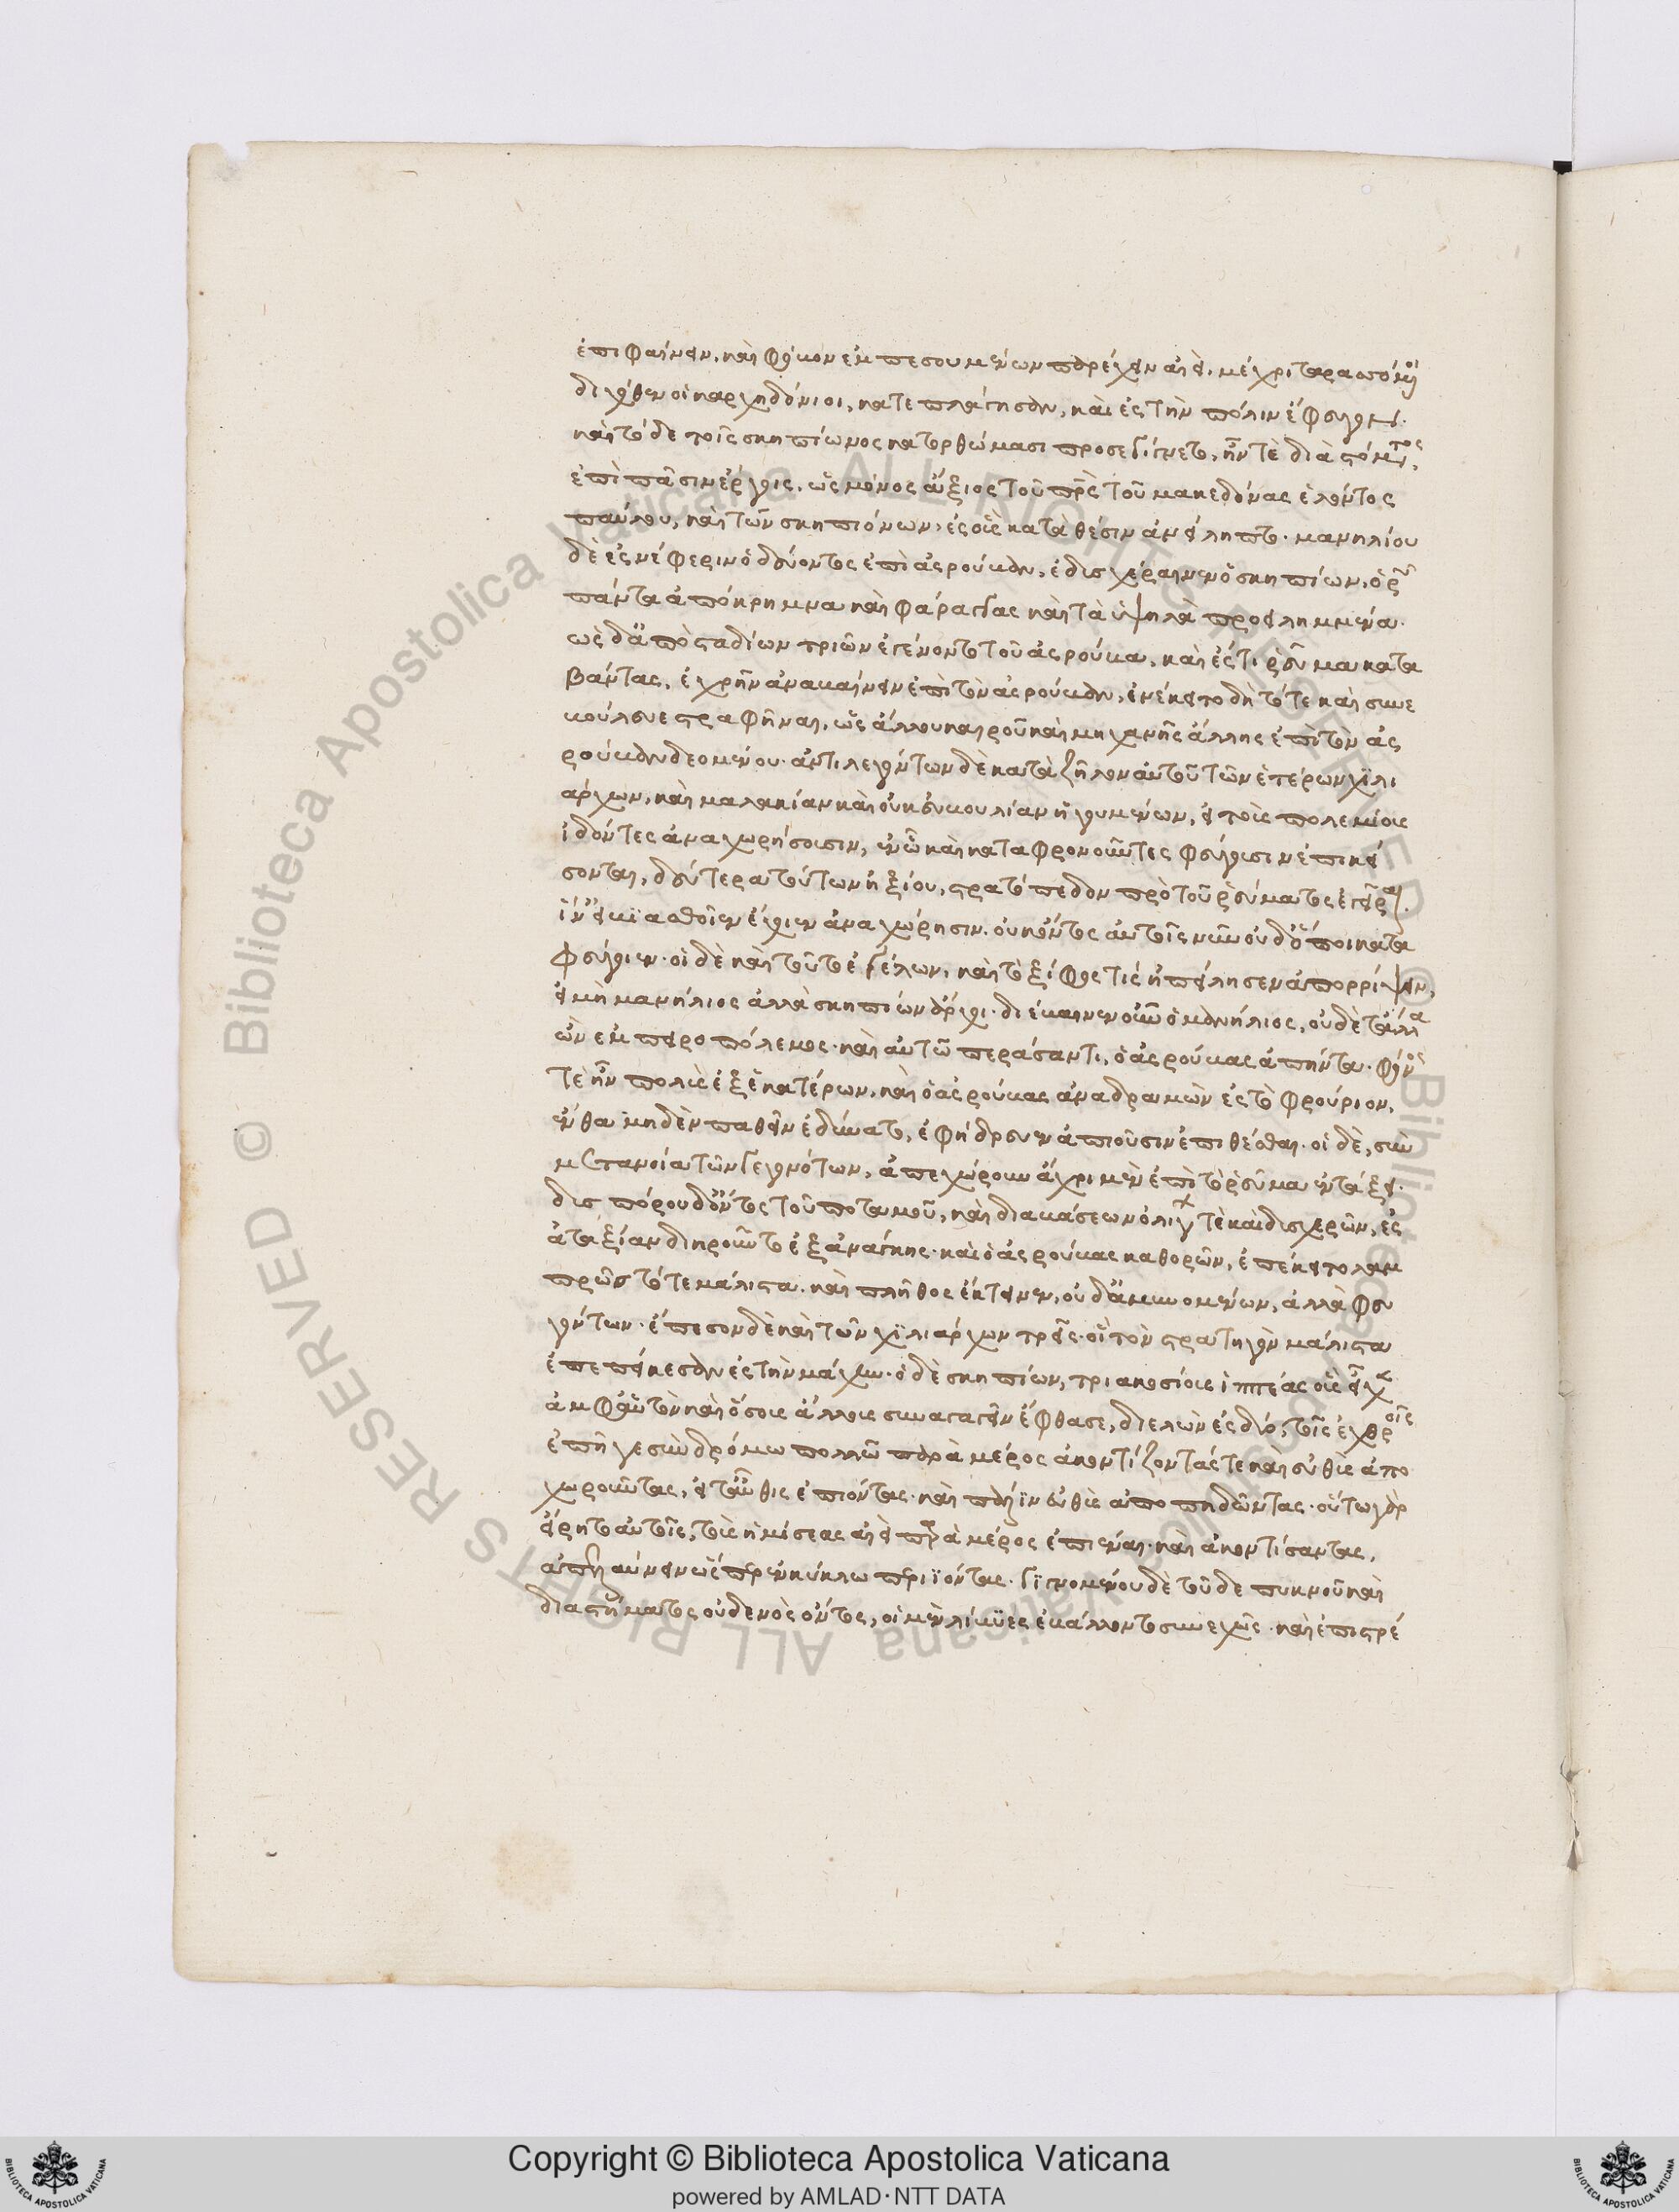 ἐπιφαίνειν, καὶ φόβον ἐμπεσουμένων παρέχειν αἰεί. μέχρι ταραττόμενοι
διόθεν οἱ καρχηδόνιοι, κατεπλάγησαν, καὶ ἐς τὴν πόλιν ἔφυγον.
καὶ τόδε τοῖς σκηπίωνος κατορθώμασι προσεγίγνετο, ἦν τὲ διὰ στόματος,
ἐπὶ πᾶσιν ἔργοις, ὡς μόνος ἄξιος τοῦ πρὸς τοῦ μακεδόνας ἑλόντος
παύλου, καὶ τῶν σκηπιόνων, ἐς οὓς κατὰ θέσιν ἀνείληπτο. μανηλίου
δὲ ἐς νέφεριν ὁδεύοντος ἐπὶ ἀσρούβαν, ἐδισχέραινεν ὁ σκηπίων, ὁρῶν
πάντα ἀπόκρημνα καὶ φάραγγας καὶ τὰ ὑψηλὰ προειλημμένα.
ὡς δ' ἀπὸ σταδίων τριῶν ἐγένοντο τοῦ ἀσρούβα, καὶ ἔς τι ῥεῦμα κατα
βάντας, ἐχρῆν ἀναβαίνειν ἐπὶ τὸν ἀσρούβαν, ἐνέκειτο δὴ τότε καὶ συνε
βούλευε στραφῆναι, ὡς ἄλλου καιροῦ καὶ μηχανῆς ἄλλης ἐπὶ τὸν ἀσ
ρούβαν δεομένου. ἀντιλεγόντων δὲ κατὰ ζῆλον αὐτοῦ τῶν ἑτέρων χιλι
άρχων, καὶ μαλακίαν καὶ οὐκ εὐβουλίαν ἡγουμένων, εἰ τοὺς πολεμίους
ἰδόντες ἀναχωρήσουσιν, ἐν ᾧ καὶ καταφρονοῦντες φεύγουσιν ἐπικεί
σονται, δεύτερα τούτων ἠξίου, στρατόπεδον πρὸ τοῦ ῥεύματος ἐγεῖραι.
ἵν' εἰ βιασθεῖεν ἔχοιεν ἀναχώρησιν. οὐκ ὄντος αὐτοῖς νῦν οὐδ' ὅποι κατα
φύγοιεν. οἱ δὲ καὶ τοῦτο ἐγέλων, καὶ τὸ ξίφος τὶς ἠπείλησεν ἀπορρίψειν,
εἰ μὴ μανήλιος ἀλλὰ σκηπίων ἄρχοι. διέβαινεν οὖν ὁ μανήλιος, οὐδὲ τἄλλα
ὢν ἐμπειροπόλεμος. καὶ αὐτῷ περάσαντι, ὁ ἀσρούβας ἀπήντα. φόνος
τὲ ἦν πολὺς ἐξ ἑκατέρων, καὶ ὁ ἀσρούβας ἀναδραμὼν ἐς τὸ φρούριον,
ἔνθα μηδὲν παθεῖν ἐδύνατο, ἐφήδρευεν ἀπιοῦσιν ἐπιθέσθαι. οἱ δὲ, σὺν
μετανοία τῶν γεγονότων, ἀπεχώρουν ἄχρι μὲν ἐπὶ τὸ ῥεῦμα ἐν τάξει.
δυσπόρου δ' ὄντος τοῦ ποταμοῦ, καὶ διαβάσεων ὀλίγων τὲ καὶ δισχερῶν, ἐς
ἀταξίαν διῃροῦντο ἐξ ἀνάγκης. καὶ ὁ ἀσρούβας καθορῶν, ἐπέκειτο λαμ
πρῶς τότε μάλιστα. καὶ πλῆθος ἔκτεινεν, οὐδ' ἀμυνομένων, ἀλλὰ φευ
γόντων. ἔπεσον δὲ καὶ τῶν χιλιάρχων τρεῖς. οἳ τὸν στρατηγὸν μάλιστα
ἐπεπείκεσαν ἐς τὴν μάχην. ὁ δὲ σκηπίων, τριακοσίους ἱππέας οὓς εἶχεν
ἀμφ' αὑτὸν καὶ ὅσους ἄλλους συναγαγεῖν ἔφθασε, διελὼν ἐς δύο, τοῖς ἐχθροῖς
ἐπῆγε σὺν δρόμω πολλῶ παρὰ μέρος ἀκοντίζοντάς τε καὶ εὐθὺς ἀπο
χωροῦντας, εἶτ' αὖθις ἐπιόντας. καὶ πάλιν εὐθὺς ἀποπηδῶντας. οὕτω γὰρ
εἴρητο αὐτοῖς, τοὺς ἡμίσεας αἰεὶ παρὰ μέρος ἐπιέναι. καὶ ἀκοντίσαντας,
ἀπελαύνειν ὥσπερ ἐν κύκλω περιϊόντας. γιγνομένου δὲ τοῦδε πυκνοῦ καὶ
διαστήματος οὐδενὸς ὄντος, οἱ μὲν λίβυες ἐβάλλοντο συνεχῶς. καὶ ἐπιστρέ
Copyright © Biblioteca Apostolica Vaticana
powered by AMLAD·NTT DATA